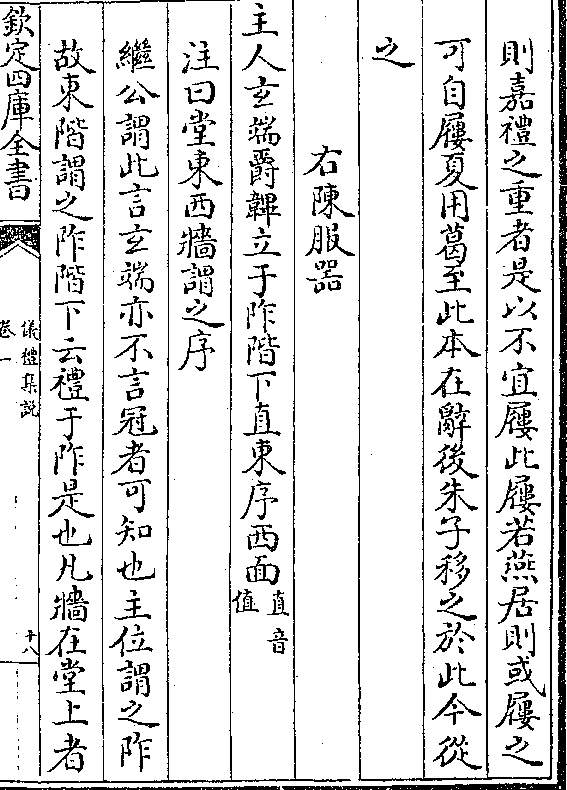 則嘉禮之重者是以不宜屨此屨若燕居則或屨之
可自屨夏用葛至此本在辭後朱子移之於此今從
之
右陳服器
主人玄端爵韠立于阼階下直東序西面直音值
注曰堂東西牆謂之序
繼公謂此言玄端亦不言冠者可知也主位謂之阼
故東階謂之阼階下云禮于阼是也凡牆在堂上者
欽定四庫全書
儀禮集說
卷一
十八